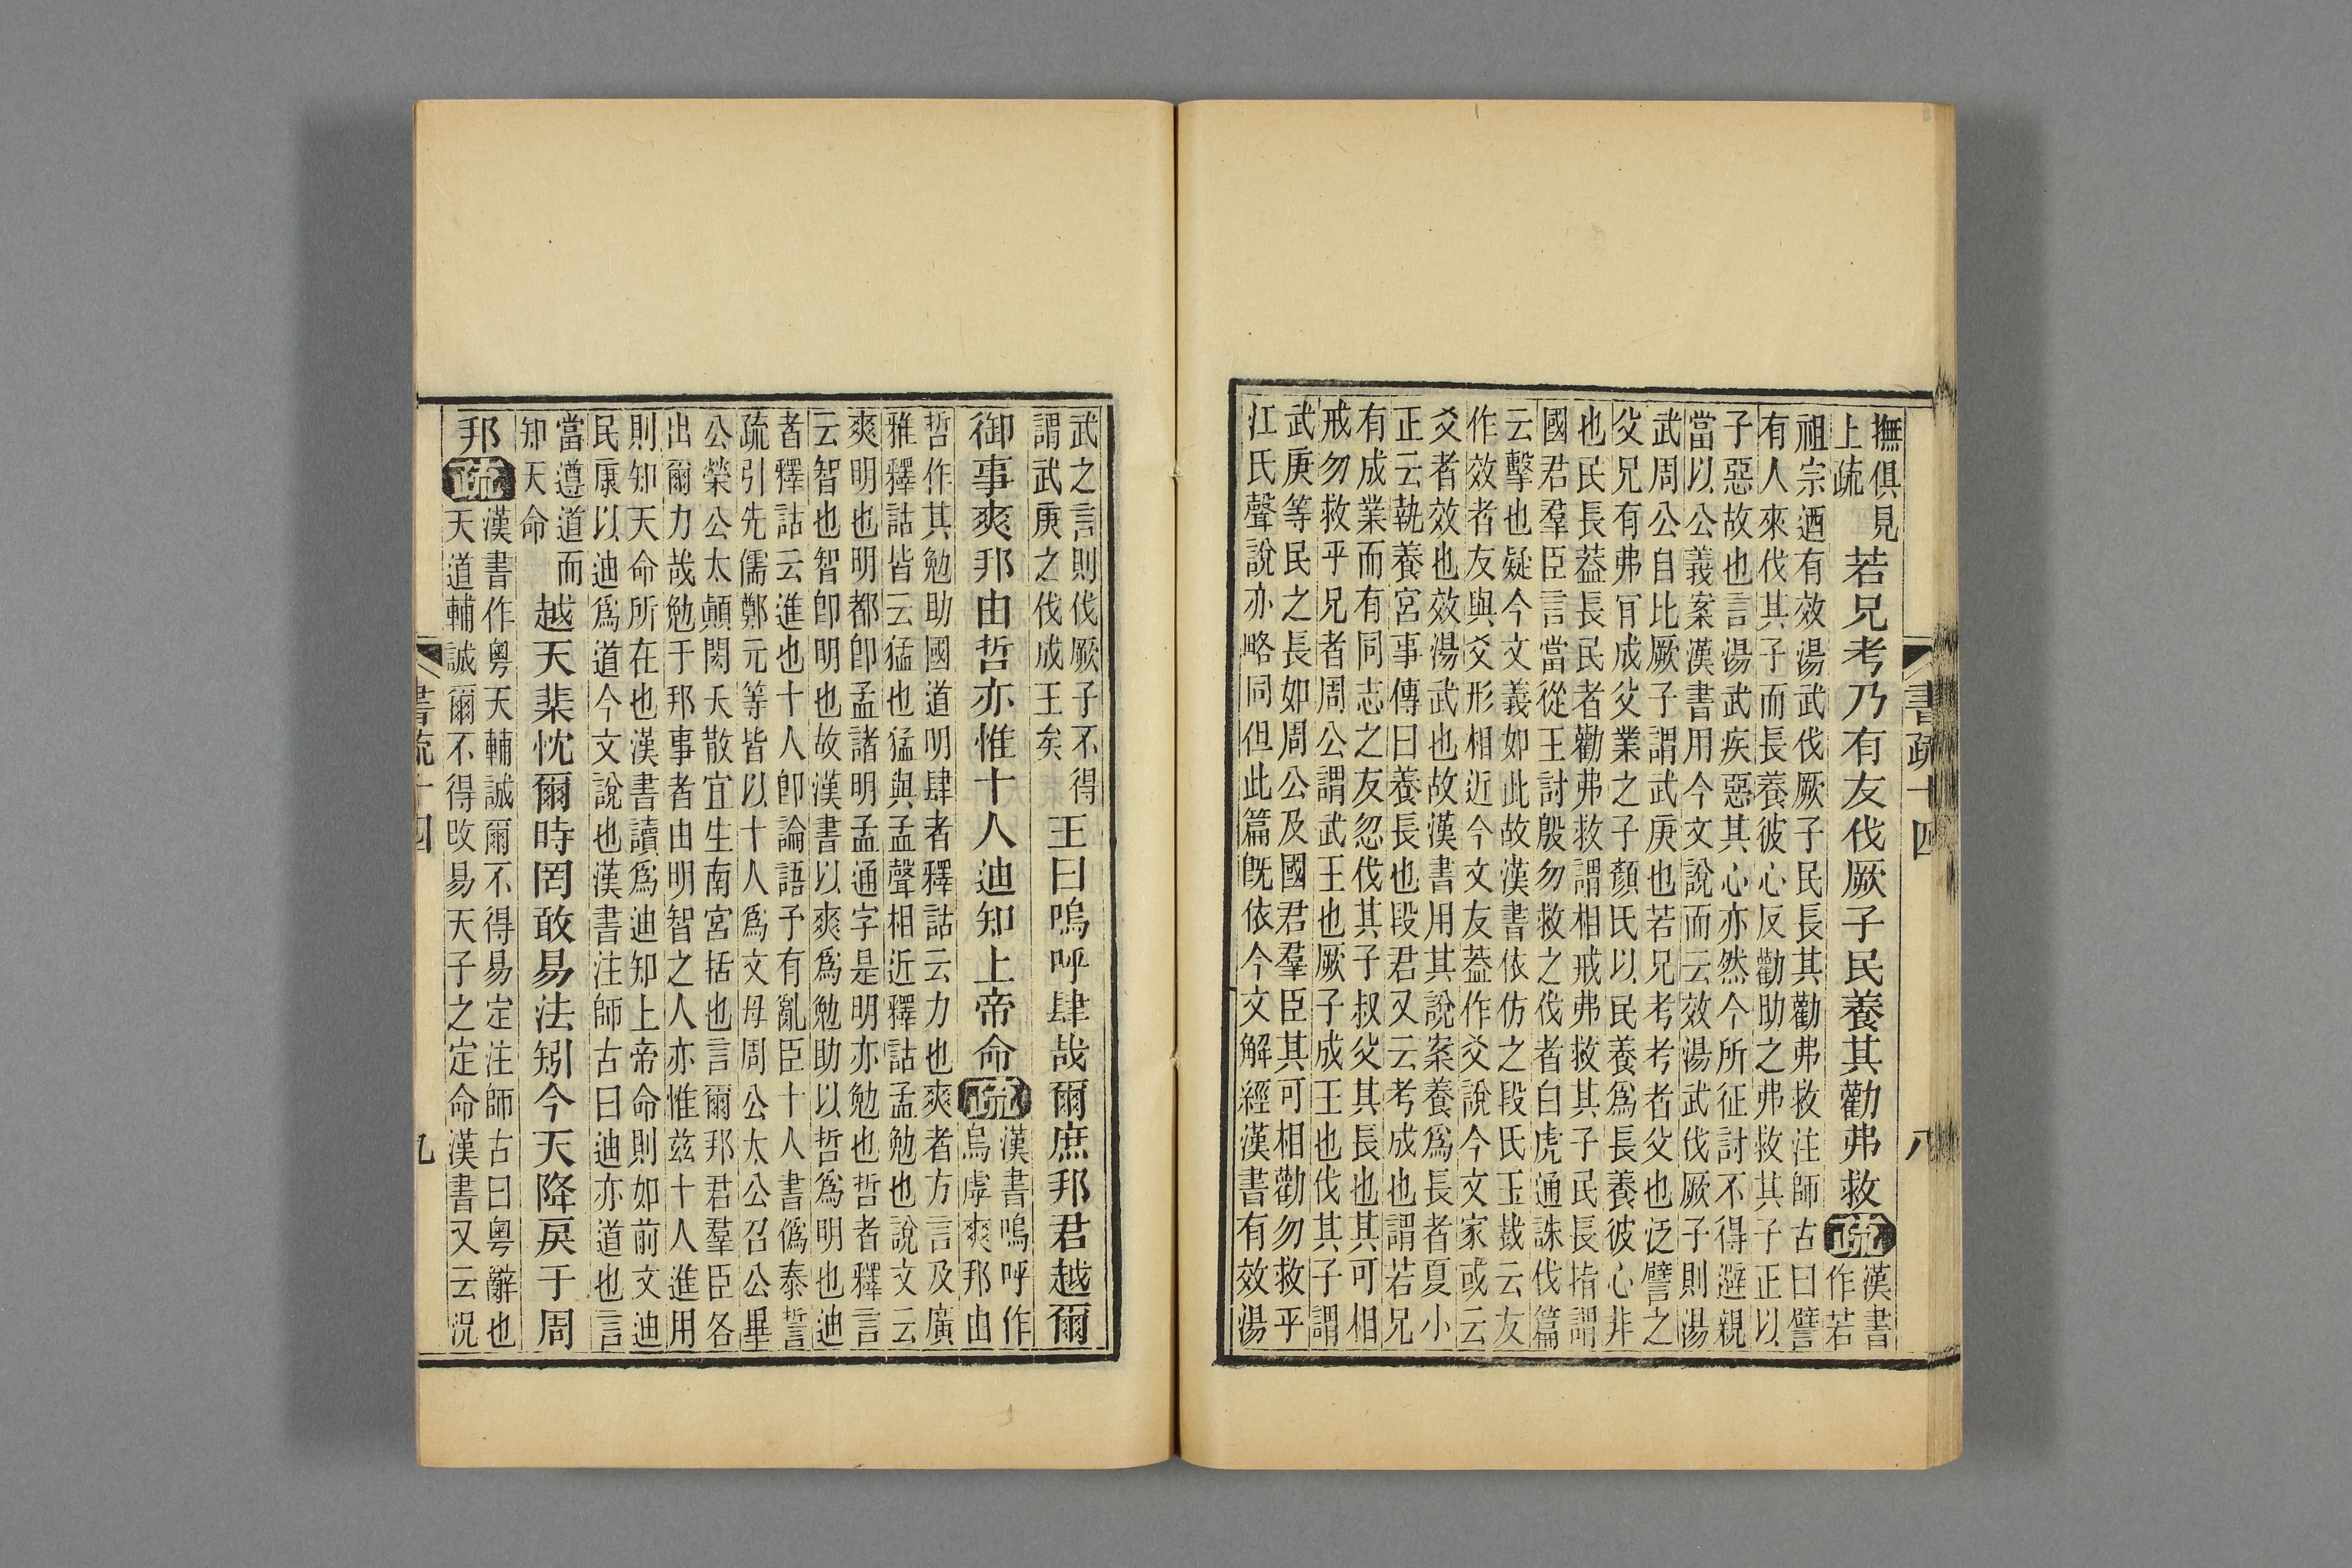 書疏十四 八
撫俱見
上疏
若兄考乃有友伐厥子民養其勸弗救
疏
漢書
作若
祖宗迺有效湯武伐厥子民長其勸弗救注師古曰譬
有人來伐其子而長養彼心反勸助之弗救其子正以
子惡故也言湯武疾惡其心亦然今所征討不得避親
當以公義案漢書用今文說而云效湯武伐厥子則湯
武周公自比厥子謂武庚也若兄考考者父也泛譬之
父兄有弗肎成父業之子顏氏以民養爲長養彼心非
也民長葢長民者勸弗救謂相戒弗救其子民長指謂
國君羣臣言當從王討殷勿救之伐者白虎通誅伐篇
云擊也疑今文義如此故漢書依仿之段氏玉裁云友
作效者友與爻形相近今文友葢作爻說今文家或云
爻者效也效湯武也故漢書用其說案養爲長者夏小
正云執養宮事傳曰養長也段君又云考成也謂若兄
有成業而有同志之友忽伐其子叔父其長也其可相
戒勿救乎兄者周公謂武王也厥子成王也伐其子謂
武庚等民之長如周公及國君羣臣其可相勸勿救乎
江氏聲說亦略同但此篇旣依今文解經漢書有效湯
武之言則伐厥子不得
謂武庚之伐成王矣
王曰嗚呼肆哉爾庶邦君越爾
御事爽邦由哲亦惟十人迪知上帝命
疏
漢書嗚呼作
烏虖爽邦由
哲作其勉助國道明肆者釋詁云力也爽者方言及廣
雅釋詁皆云猛也猛與孟聲相近釋詁孟勉也說文云
爽明也明都卽孟諸明孟通字是明亦勉也哲者釋言
云智也智卽明也故漢書以爽爲勉助以哲爲明也迪
者釋詁云進也十人卽論語予有亂臣十人書僞泰誓
疏引先儒鄭元等皆以十人爲文母周公太公召公畢
公榮公太顚閎夭散宜生南宮括也言爾邦君羣臣各
出爾力哉勉于邦事者由明智之人亦惟兹十人進用
則知天命所在也漢書讀爲迪知上帝命則如前文迪
民康以迪爲道今文說也漢書注師古曰迪亦道也言
當遵道而
知天命
越天棐忱爾時罔敢易法矧今天降戾于周
邦
疏
漢書作粵天輔誠爾不得易定注師古曰粵辭也
天道輔誠爾不得改易天子之定命漢書又云況
書疏十四 九